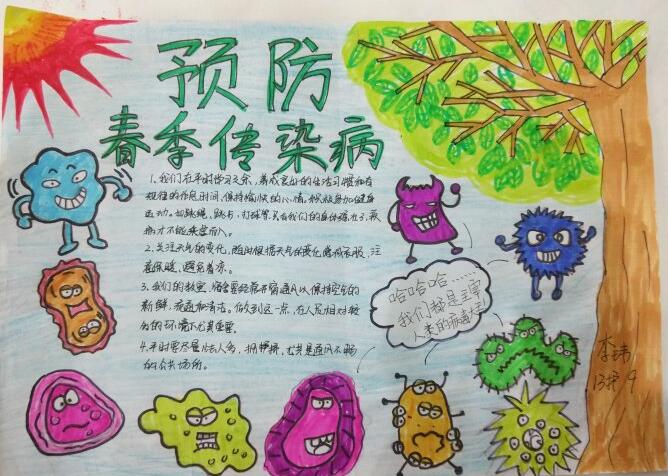 预防
春季传染病
1、我们在平时学习之余，养成良好的生活习惯和有
规律的作息时间，保持愉快的心情，积极参加健身
运动。如跳绳，跑步，打球等，只有我们的身体强壮了，疾
病才不能乘虚而入。
2、关注天气的变化，随时根据天气的变化增减衣服，注
意保暖，避免着凉。
3、我们的教室，宿舍要经常开窗通风以保持空气的
新鲜，流通和清洁。做到这一点，在人员相对较
的环境下尤其重要。
4、平时要尽量少去人多，拥挤，尤其是通风不畅
的公共场所。
哈哈哈……
我们都是主宰
人类的病毒大王
李玮
13护9